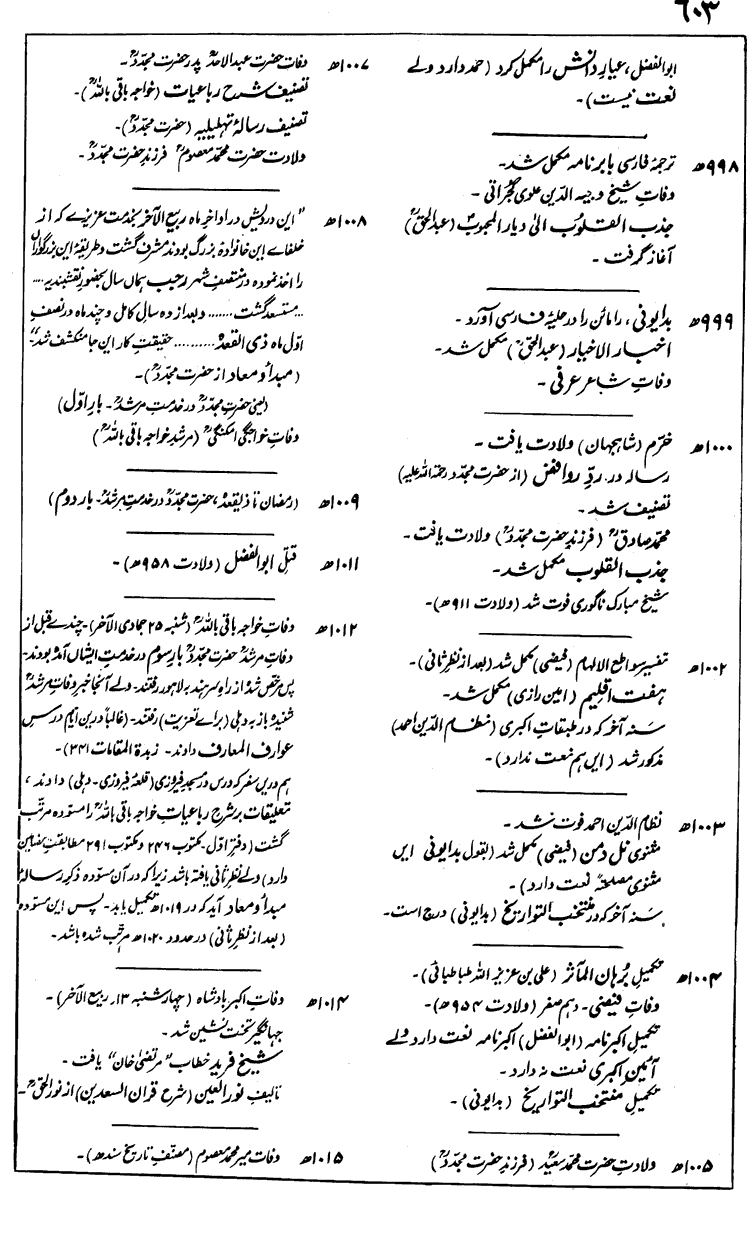 ٦٠٣
ابوالفضل، عیار دانش را مکمل کرد (حمد دارد ولے
نعت نیست)۔
۹۹۸ھ ترجمۂ فارسی بابر نامہ مکمل شد۔
وفاتِ شیخ وجیہ الدین علوی گجراتیؒ۔
جذب القلوب الیٰ دیار المحبوب (عبدالحقؒ)
آغاز گرفت۔
۹۹۹ھ بدایونی، رامائن را در حلیۂ فارسی آورد۔
اخبار الاخیار (عبدالحقؒ) مکمل شد۔
وفاتِ شاعر عرفی۔
۱۰۰۰ھ خرّم (شاہجہان) ولادت یافت۔
رسالہ در ردِّ روافض (از حضرت مجدد رحمۃ اللہ علیہ)
تصنیف شد۔
محمد صادقؒ (فرزندِ حضرت مجددؒ) ولادت یافت۔
جذب القلوب مکمل شد۔
شیخ مبارک ناگوری فوت شد (ولادت ۹۱۱ھ)۔
۱۰۰۲ھ تفسیر سواطع الالہام (فیضی) مکمل شد (بعد از نظرِ ثانی)۔
ہفت اقلیم (امین رازی) مکمل شد۔
سنہ آخر کہ در طبقاتِ اکبری (نظام الدّین احمد)
مذکور شد (ایں ہم نعت ندارد)۔
۱۰۰۳ھ نظام الدّین احمد فوت شد۔
مثنوی نل دمن (فیضی) مکمل شد (بقول بدایونی ایں
مثنوی مصلحۃً نعت دارد)۔
سنہ آخر کہ در منتخب التواریخ (بدایونی) درج است۔
۱۰۰۴ھ تکمیل بُرہان المآثر (علی بن عزیز اللہ طباطبائی)۔
وفاتِ فیضی۔ دہم صفر (ولادت ۹۵۴ھ)۔
تکمیلِ اکبر نامہ (ابوالفضل) اکبر نامہ نعت دارد ولے
آئینِ اکبری نعت نہ دارد۔
تکمیلِ منتخب التواریخ (بدایونی)۔
۱۰۰۵ھ ولادتِ حضرت محمد سعیدؒ (فرزندِ حضرت مجددؒ)
۱۰۰۷ھ وفات حضرت عبدالاحدؒ پدرِ حضرت مجددؒ۔
تصنیف شرح رباعیات (خواجہ باقی باللہؒ)۔
تصنیف رسالۂ تہلیلیہ (حضرت مجددؒ)۔
ولادت حضرت محمد معصومؒ فرزندِ حضرت مجددؒ۔
۱۰۰۸ھ "ایں درویش در اواخرِ ماہ ربیع الآخر بخدمت عزیزے کہ از
خلفائے ایں خانوادۂ بزرگ بودند مشرف گشت و طریقۂ ایں بزرگواراں
را اخذ نمودہ در منتصفِ شہر رجب ہماں سال بحضورِ نقشبندیہ....
...مستسعد گشت....... و بعد از دہ سالِ کامل و چند ماہ در نصفِ
اوّل ماہ ذی القعدہ......... حقیقتِ کار ایں جا منکشف شد"۔
(مبدأ و معاد از حضرت مجددؒ)۔
(یعنی حضرت مجددؒ در خدمتِ مرشدؒ۔ بارِ اوّل)
وفاتِ خواجگی امکنگیؒ (مرشدِ خواجہ باقی باللہؒ)
۱۰۰۹ھ (رمضان تا ذیقعدہ، حضرت مجددؒ در خدمتِ مرشدؒ۔ بارِ دوم)
۱۰۱۱ھ قتلِ ابوالفضل (ولادت ۹۵۸ھ)۔
۱۰۱۲ھ وفاتِ خواجہ باقی باللہؒ (شنبہ ۲۵ جمادی الآخر)۔ چندے قبل از
وفاتِ مرشدؒ حضرت مجددؒ بارِ سوم در خدمتِ ایشاں آمدہ بودند۔
پس مرخص شدہ از راہِ سرہند بہ لاہور رفتند۔ ولے آنجا خبرِ وفاتِ مرشدؒ
شنیدہ باز بہ دہلی (برائے تعزیت) رفتند۔ (غالباً دریں ایام درسِ
عوارف المعارف دادند۔ زبدۃ المقامات ۲۴۱)۔
ہم دریں سفر کہ درس در مسجدِ فیروزی (قلعۂ فیروزی۔ دہلی) دادند،
تعلیقات بر شرحِ رباعیاتِ خواجہ باقی باللہؒ را مسودہ مرتّب
گشت (دفترِ اوّل۔ مکتوب ۲۴۶ و مکتوب ۲۹۱ مطابقتِ مضامین
دارد) ولے نظرِ ثانی یافتہ باشد زیرا کہ در آں مسودہ ذکرِ رسالۂ
مبدأ و معاد آید کہ در ۱۰۱۹ھ تکمیل یابد۔ پس ایں مسودہ
(بعد از نظرِ ثانی) در حدود ۱۰۲۰ھ مرتّب شدہ باشد۔
۱۰۱۴ھ وفاتِ اکبر بادشاہ (چہار شنبہ ۱۳۔ ربیع الآخر)۔
جہانگیر تخت نشین شد۔
شیخ فرید خطاب "مرتضیٰ خان" یافت۔
تالیفِ نور العین (شرح قران السعدین) از نور الحقؒ۔
۱۰۱۵ھ وفات میر محمد معصوم (مصنّفِ تاریخِ سندھ)۔